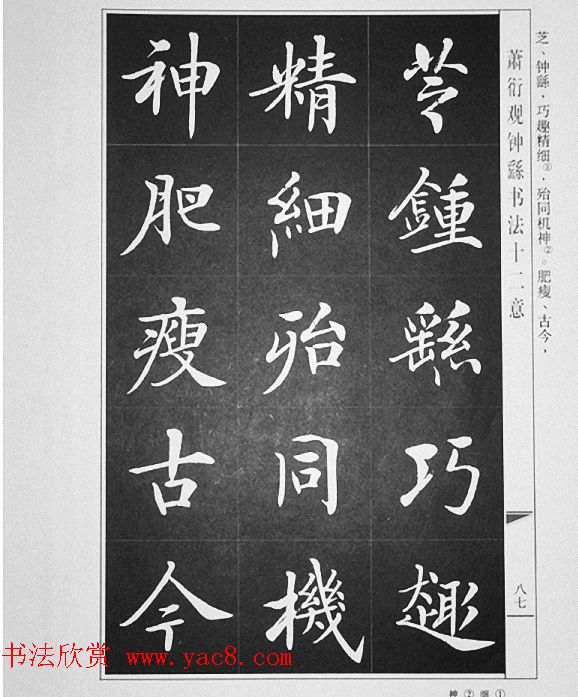 芝、钟繇,巧趣精细①,殆同机神②。肥瘦、古今,
萧衍观钟繇书法十二意
八七
芝鍾繇巧趣
精細殆同機
神肥瘦古今
书法欣赏 www.yac8.com